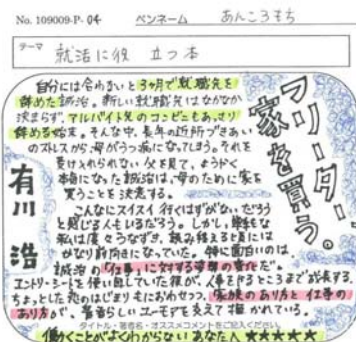 No. 109009-P-04 ペンネーム あんころもち
テーマ
就活に役立つ本
フリーター、
家を買う。
有川 浩
自分には合わないと3ヶ月で就職先を
辞めた誠治。新しい就職先はなかなか
決まらず、アルバイト先のコンビニもあっさり
辞める始末。そんな中、長年の近所づきあい
のストレスから母がうつ病になってしまう。それを
受け入れられない父を見て、ようやく
本気になった誠治は、母のために家を
買うことを決意する。
こんなにスイスイ行くはずがないだろう
と感じる人もいるだろう。しかし、単純な
私は度々うなずき、読み終える頃には
かなり前向きになっていた。特に面白いのは
誠治の「仕事」に対する姿勢の変化だ。
エントリーシートを使い回していた彼が、人事をするところまで成長する。
ちょっとした恋のはじまりもにおわせつつ、家族のあり方と仕事の
あり方が、素晴らしいユーモアを交えて描かれている。
タイトル・著者名・オススメコメントをご記入ください。
働くことがよくわからないあなたへ ★★★★★